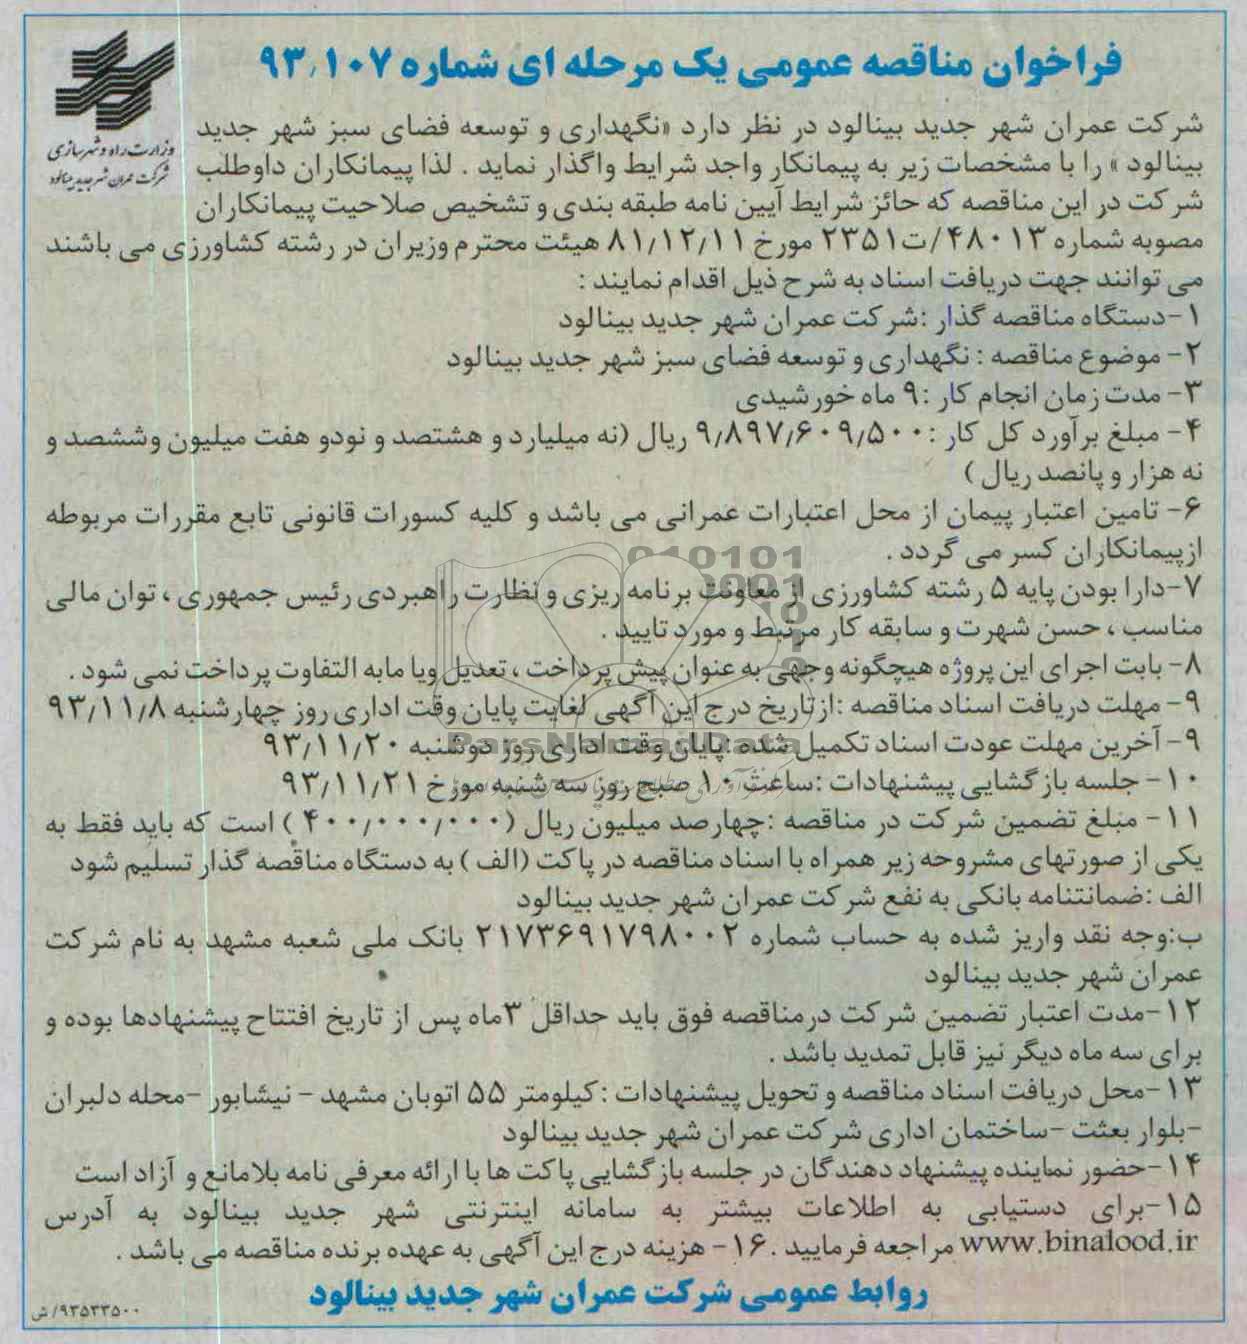 فراخوان مناقصه عمومی یک مرحله ای شماره ۹۳٫۱۰۷
وزارت راه و شهرسازی
شرکت عمران شهر جدید بینالود
شرکت عمران شهر جدید بینالود در نظر دارد «نگهداری و توسعه فضای سبز شهر جدید
بینالود » را با مشخصات زیر به پیمانکار واجد شرایط واگذار نماید . لذا پیمانکاران داوطلب
شرکت در این مناقصه که حائز شرایط آیین نامه طبقه بندی و تشخیص صلاحیت پیمانکاران
مصوبه شماره ۴۸۰۱۳/ت۲۳۵۱ مورخ ۸۱٫۱۲٫۱۱ هیئت محترم وزیران در رشته کشاورزی می باشند
می توانند جهت دریافت اسناد به شرح ذیل اقدام نمایند :
۱-دستگاه مناقصه گذار :شرکت عمران شهر جدید بینالود
۲- موضوع مناقصه : نگهداری و توسعه فضای سبز شهر جدید بینالود
۳- مدت زمان انجام کار :۹ ماه خورشیدی
۴- مبلغ برآورد کل کار :۹٫۸۹۷٫۶۰۹٫۵۰۰ ریال (نه میلیارد و هشتصد و نودو هفت میلیون وششصد و
نه هزار و پانصد ریال )
۶- تامین اعتبار پیمان از محل اعتبارات عمرانی می باشد و کلیه کسورات قانونی تابع مقررات مربوطه
ازپیمانکاران کسر می گردد .
۷-دارا بودن پایه ۵ رشته کشاورزی از معاونت برنامه ریزی و نظارت راهبردی رئیس جمهوری ، توان مالی
مناسب ، حسن شهرت و سابقه کار مرتبط و مورد تایید .
۸- بابت اجرای این پروژه هیچگونه وجهی به عنوان پیش پرداخت ، تعدیل ویا مابه التفاوت پرداخت نمی شود .
۹- مهلت دریافت اسناد مناقصه :ازتاریخ درج این آگهی لغایت پایان وقت اداری روز چهارشنبه ۹۳٫۱۱٫۸
۹- آخرین مهلت عودت اسناد تکمیل شده :پایان وقت اداری روز دوشنبه ۹۳٫۱۱٫۲۰
۱۰- جلسه بازگشایی پیشنهادات :ساعت ۱۰ صبح روز سه شنبه مورخ ۹۳٫۱۱٫۲۱
۱۱- مبلغ تضمین شرکت در مناقصه :چهارصد میلیون ریال (۴۰۰٫۰۰۰٫۰۰۰ ) است که باید فقط به
یکی از صورتهای مشروحه زیر همراه با اسناد مناقصه در پاکت (الف ) به دستگاه مناقصه گذار تسلیم شود
الف :ضمانتنامه بانکی به نفع شرکت عمران شهر جدید بینالود
ب:وجه نقد واریز شده به حساب شماره ۲۱۷۳۶۹۱۷۹۸۰۰۲ بانک ملی شعبه مشهد به نام شرکت
عمران شهر جدید بینالود
۱۲-مدت اعتبار تضمین شرکت درمناقصه فوق باید حداقل ۳ماه پس از تاریخ افتتاح پیشنهادها بوده و
برای سه ماه دیگر نیز قابل تمدید باشد .
۱۳-محل دریافت اسناد مناقصه و تحویل پیشنهادات :کیلومتر ۵۵ اتوبان مشهد - نیشابور -محله دلبران
-بلوار بعثت -ساختمان اداری شرکت عمران شهر جدید بینالود
۱۴-حضور نماینده پیشنهاد دهندگان در جلسه بازگشایی پاکت ها با ارائه معرفی نامه بلامانع و آزاد است
۱۵-برای دستیابی به اطلاعات بیشتر به سامانه اینترنتی شهر جدید بینالود به آدرس
www.binalood.ir مراجعه فرمایید .۱۶- هزینه درج این آگهی به عهده برنده مناقصه می باشد .
روابط عمومی شرکت عمران شهر جدید بینالود
۹۳۵۳۳۵۰۰/ش
ParsNamadData